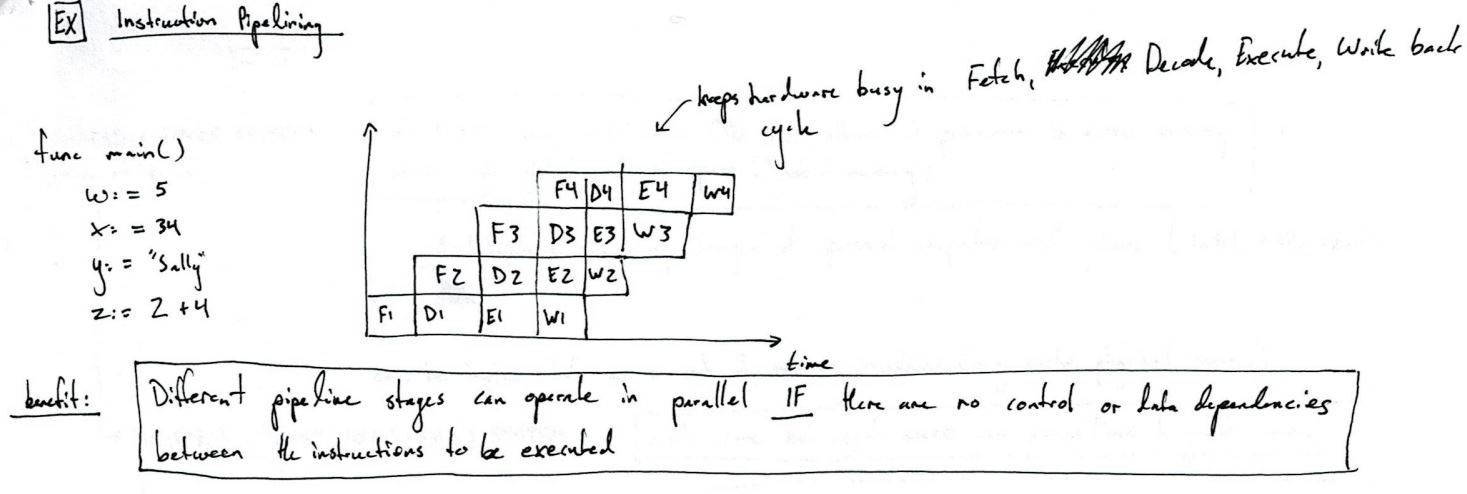 EX Instruction Pipelining
keeps hardware busy in Fetch, Decode, Execute, Write back
cycle
func main()
w := 5
x := 34
y := "Sally"
z := 2 + 4
F4 D4 E4 W4
F3 D3 E3 W3
F2 D2 E2 W2
F1 D1 E1 W1
time
benefit: Different pipeline stages can operate in parallel IF there are no control or data dependencies
between the instructions to be executed